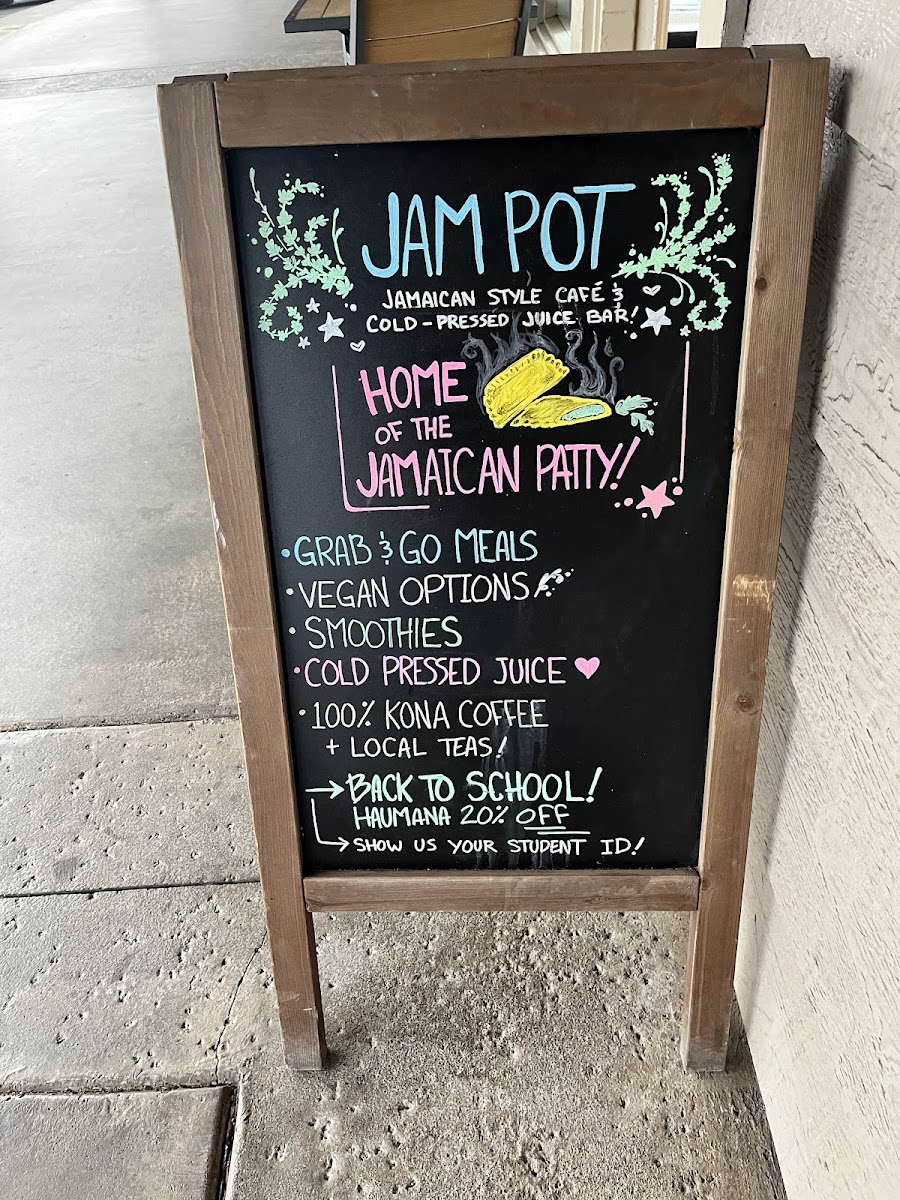 JAM POT
JAMAICAN STYLE CAFÉ &
COLD-PRESSED JUICE BAR!
HOME
OF THE
JAMAICAN PATTY!
• GRAB & GO MEALS
• VEGAN OPTIONS
• SMOOTHIES
• COLD PRESSED JUICE ♥
• 100% KONA COFFEE
+ LOCAL TEAS!
→ BACK TO SCHOOL!
HAUMANA 20% OFF
→ SHOW US YOUR STUDENT ID!